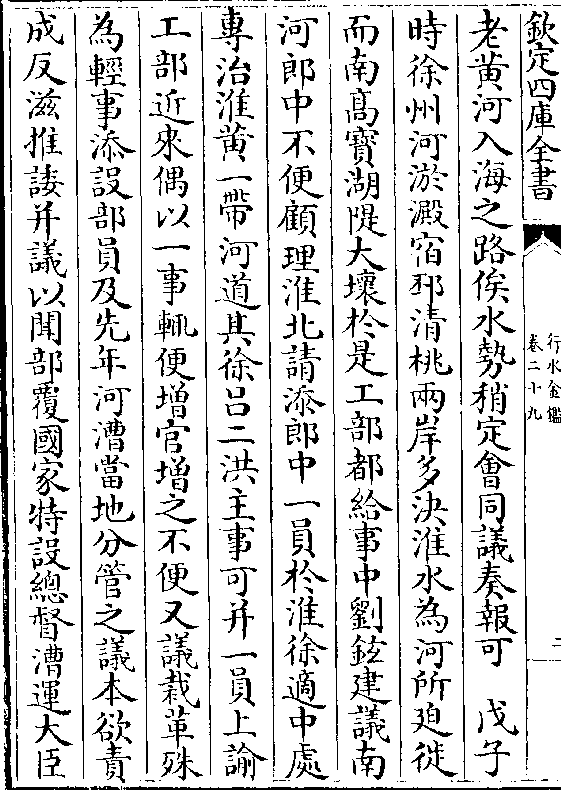 欽定四庫全書
行水金鑑
卷二十九
二
老黃河入海之路俟水勢稍定會同議奏報可　戊子
時徐州河淤澱宿邳清桃兩岸多決淮水為河所廹徙
而南髙寳湖隄大壞於是工部都給事中劉鉉建議南
河郎中不便顧理淮北請添郎中一員於淮徐適中處
專治淮黄一帶河道其徐吕二洪主事可并一員上諭
工部近來偶以一事輒便增官增之不便又議裁革殊
為輕事添設部員及先年河漕當地分管之議本欲責
成反滋推諉并議以聞部覆國家特設總督漕運大臣